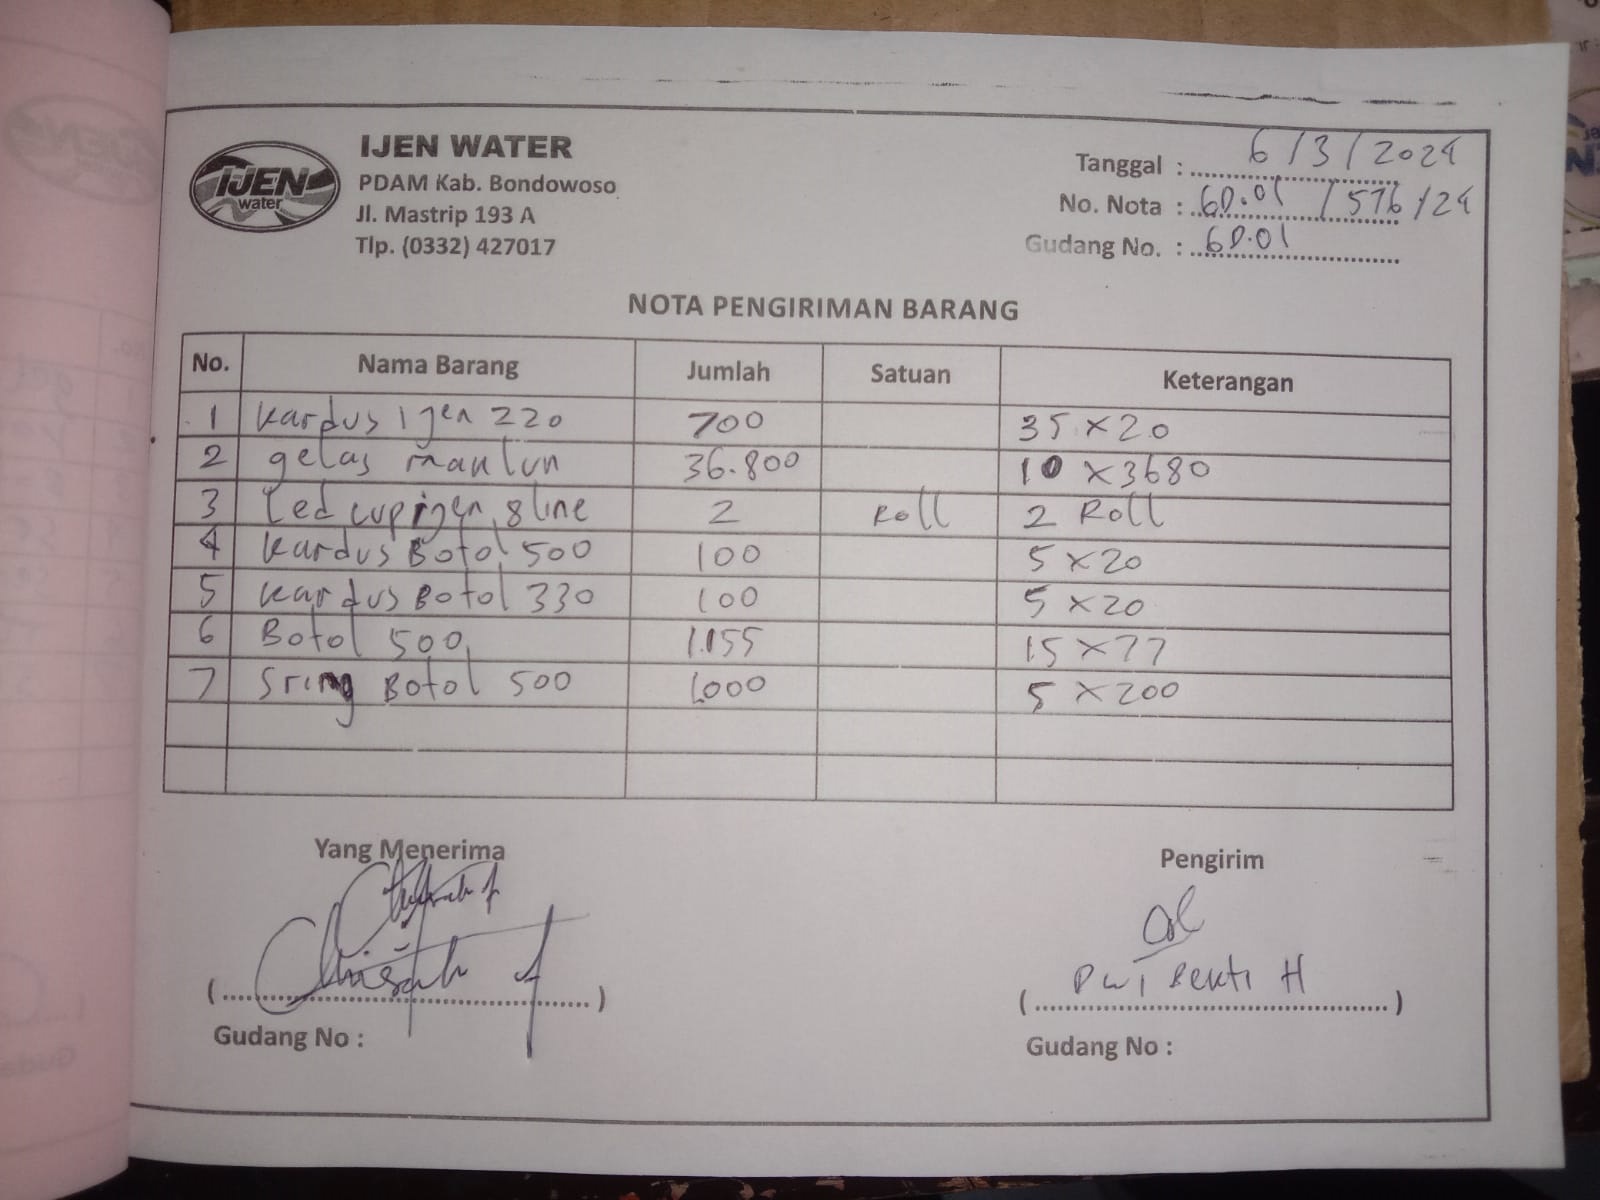 IJEN WATER
PDAM Kab. Bondowoso
Jl. Mastrip 193 A
Tlp. (0332) 427017
IJEN
water
Tanggal : 6/3/2024
No. Nota : GD.01 /576/24
Gudang No. : GD.01
NOTA PENGIRIMAN BARANG
No. Nama Barang Jumlah Satuan Keterangan
1 Kardus Ijen 220 700 35 x 20
2 gelas 36.800 10 x 3680
3 Led cup ijen 8 line 2 Roll 2 Roll
4 Kardus Botol 500 100 5 x 20
5 Kardus Botol 330 100 5 x 20
6 Botol 500 1.155 15 x 77
7 Sring Botol 500 1.000 5 x 200
Yang Menerima Pengirim
Dwi Bekti H
Gudang No : Gudang No :